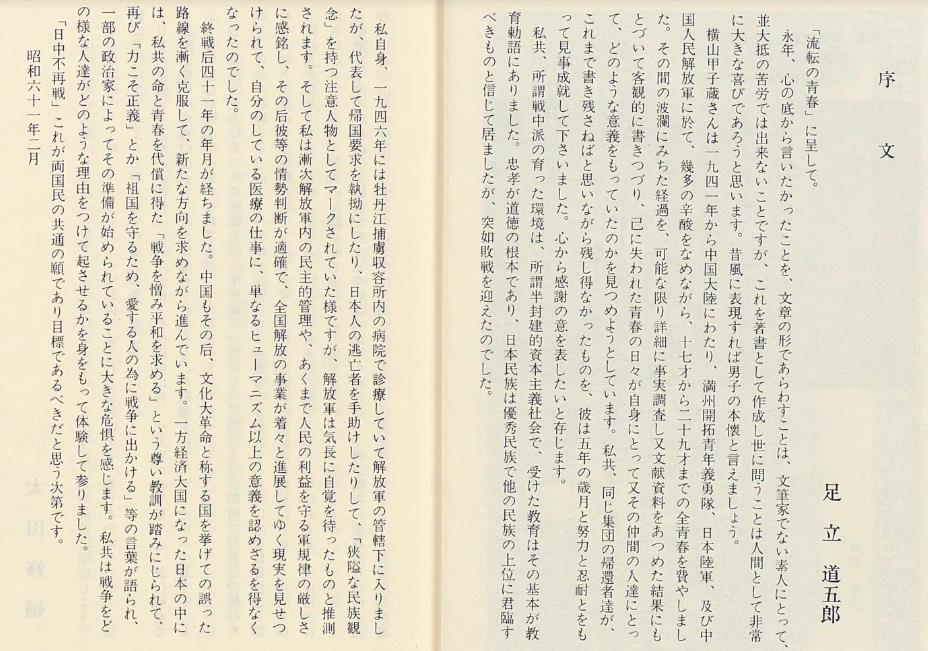 序文
足立道五郎
「流転の青春」に呈して。
永年、心の底から言いたかったことを、文章の形であらわすことは、文筆家でない素人にとって、
並大抵の苦労では出来ないことですが、これを著書として作成し世に問うことは人間として非常
に大きな喜びであろうと思います。昔風に表現すれば男子の本懐と言えましょう。
横山甲子蔵さんは一九四一年から中国大陸にわたり、満州開拓青年義勇隊、日本陸軍、及び中
国人民解放軍に於て、幾多の辛酸をなめながら、十七才から二十九才までの全青春を費やしまし
た。その間の波瀾にみちた経過を、可能な限り詳細に事実調査し又文献資料をあつめた結果にも
とづいて客観的に書きつづり、已に失われた青春の日々が自身にとって又その仲間の人達にとっ
て、どのような意義をもっていたのかを見つめようとしています。私共、同じ集団の帰還者達が、
これまで書き残さねばと思いながら残し得なかったものを、彼は五年の歳月と努力と忍耐ともを
って見事成就して下さいました。心から感謝の意を表したいと存じます。
私共、所謂戦中派の育った環境は、所謂半封建的資本主義社会で、受けた教育はその基本が教
育勅語にありました。忠孝が道徳の根本であり、日本民族は優秀民族で他の民族の上位に君臨す
べきものと信じて居ましたが、突如敗戦を迎えたのでした。
私自身、一九四六年には牡丹江捕虜収容所内の病院で診療していて解放軍の管轄下に入りまし
たが、代表して帰国要求を執拗にしたり、日本人の逃亡者を手助けしたりして、「狭隘な民族観
念」を持つ注意人物としてマークされていた様ですが、解放軍は気長に自覚を待ったものと推測
されます。そして私は漸次解放軍内の民主的管理や、あくまで人民の利益を守る軍規律の厳しさ
に感銘し、その后彼等の情勢判断が適確で、全国解放の事業が着々と進展してゆく現実を見せつ
けられて、自分のしている医療の仕事に、単なるヒューマニズム以上の意義を認めざるを得なく
なったのでした。
終戦后四十一年の年月が経ちました。中国もその后、文化大革命と称する国を挙げての誤った
路線を漸く克服して、新たな方向を求めながら進んでいます。一方経済大国になった日本の中に
は、私共の命と青春を代償に得た「戦争を憎み平和を求める」という尊い教訓が踏みにじられて、
再び「力こそ正義」とか「祖国を守るため、愛する人の為に戦争に出かける」等の言葉が語られ、
一部の政治家によってその準備が始められていることに大きな危惧を感じます。私共は戦争をど
の様な人達がどのような理由をつけて起させるかを身をもって体験して参りました。
「日中不再戦」これが両国民の共通の願であり目標であるべきだと思う次第です。
昭和六十一年二月